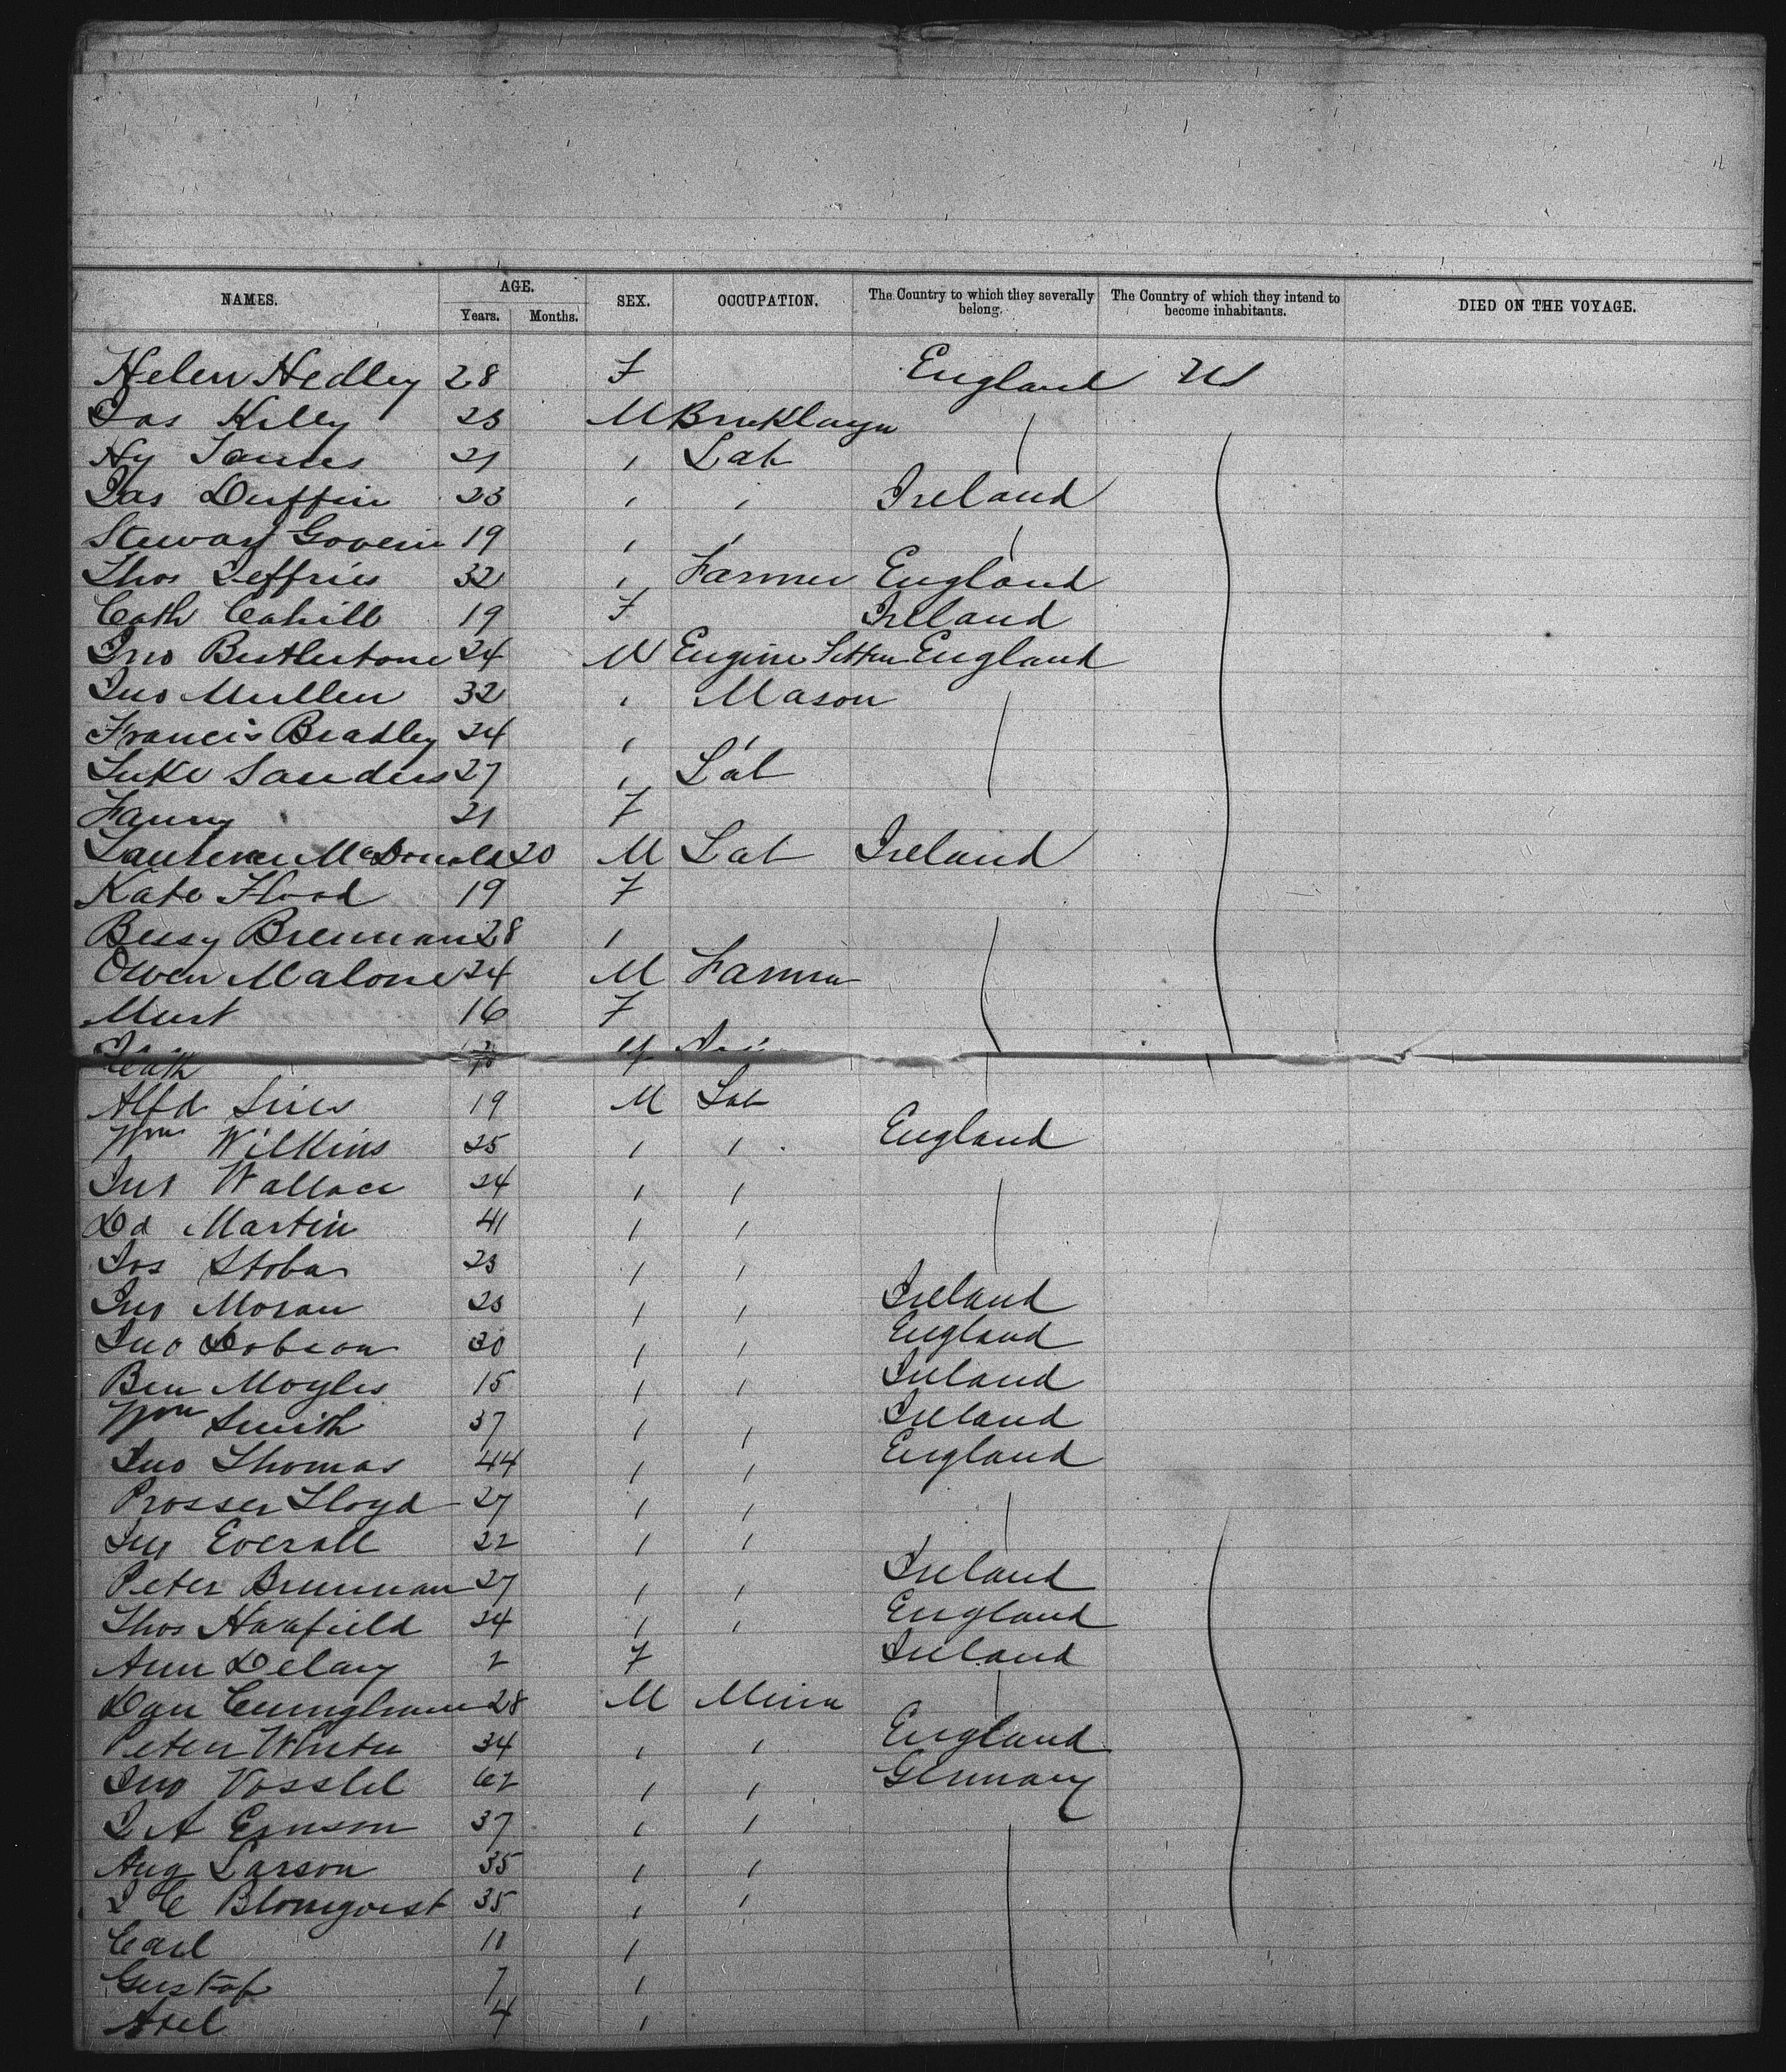 NAMES. AGE. SEX. OCCUPATION. The Country to which they severally belong. The Country of which they intend to become inhabitants. DIED ON THE VOYAGE.
Years. Months.
Helen Hedley 28 F England US
Jas Kelly 23 M Bricklayer
Hy 21 " Lab
Jas Duffin 23 " " Ireland
Stewart 19 " " "
Thos Jeffries 32 " Farmer England
Cath Cahill 19 F Ireland
Jno 24 M Engine Fitter England
Jno Mullen 32 " Mason
Francis Bradley 24 " "
Luke Sanders 27 " Lab
Fanny 21 F
Laurence McDonald 20 M Lab Ireland
Kate Flood 19 F
Bessy Brennan 28 "
Owen Malone 24 M Farmer
16 F
Cath
Alfd 19 M Lab
Wm Wilkins 25 " " England
Jno Wallace 24 " "
Dd Martin 41 " "
Jos 23 " "
Jno Moran 23 " " Ireland
Jno Dobson 30 " " England
Ben Moyles 15 " " Ireland
Wm Smith 37 " " Ireland
Jno Thomas 44 " " England
Prosser Lloyd 27 " "
Jno Everall 22 " "
Peter Brennan 27 " " Ireland
Thos 24 " " England
Ann Delany 2 F Ireland
Dan 28 M Miner
Peter 34 " " England
Jno 62 " " Germany
37 " "
Aug Larson 35 " "
Blomqvist 35 " "
Carl 11 "
Gustaf 7 "
Axel 4 "